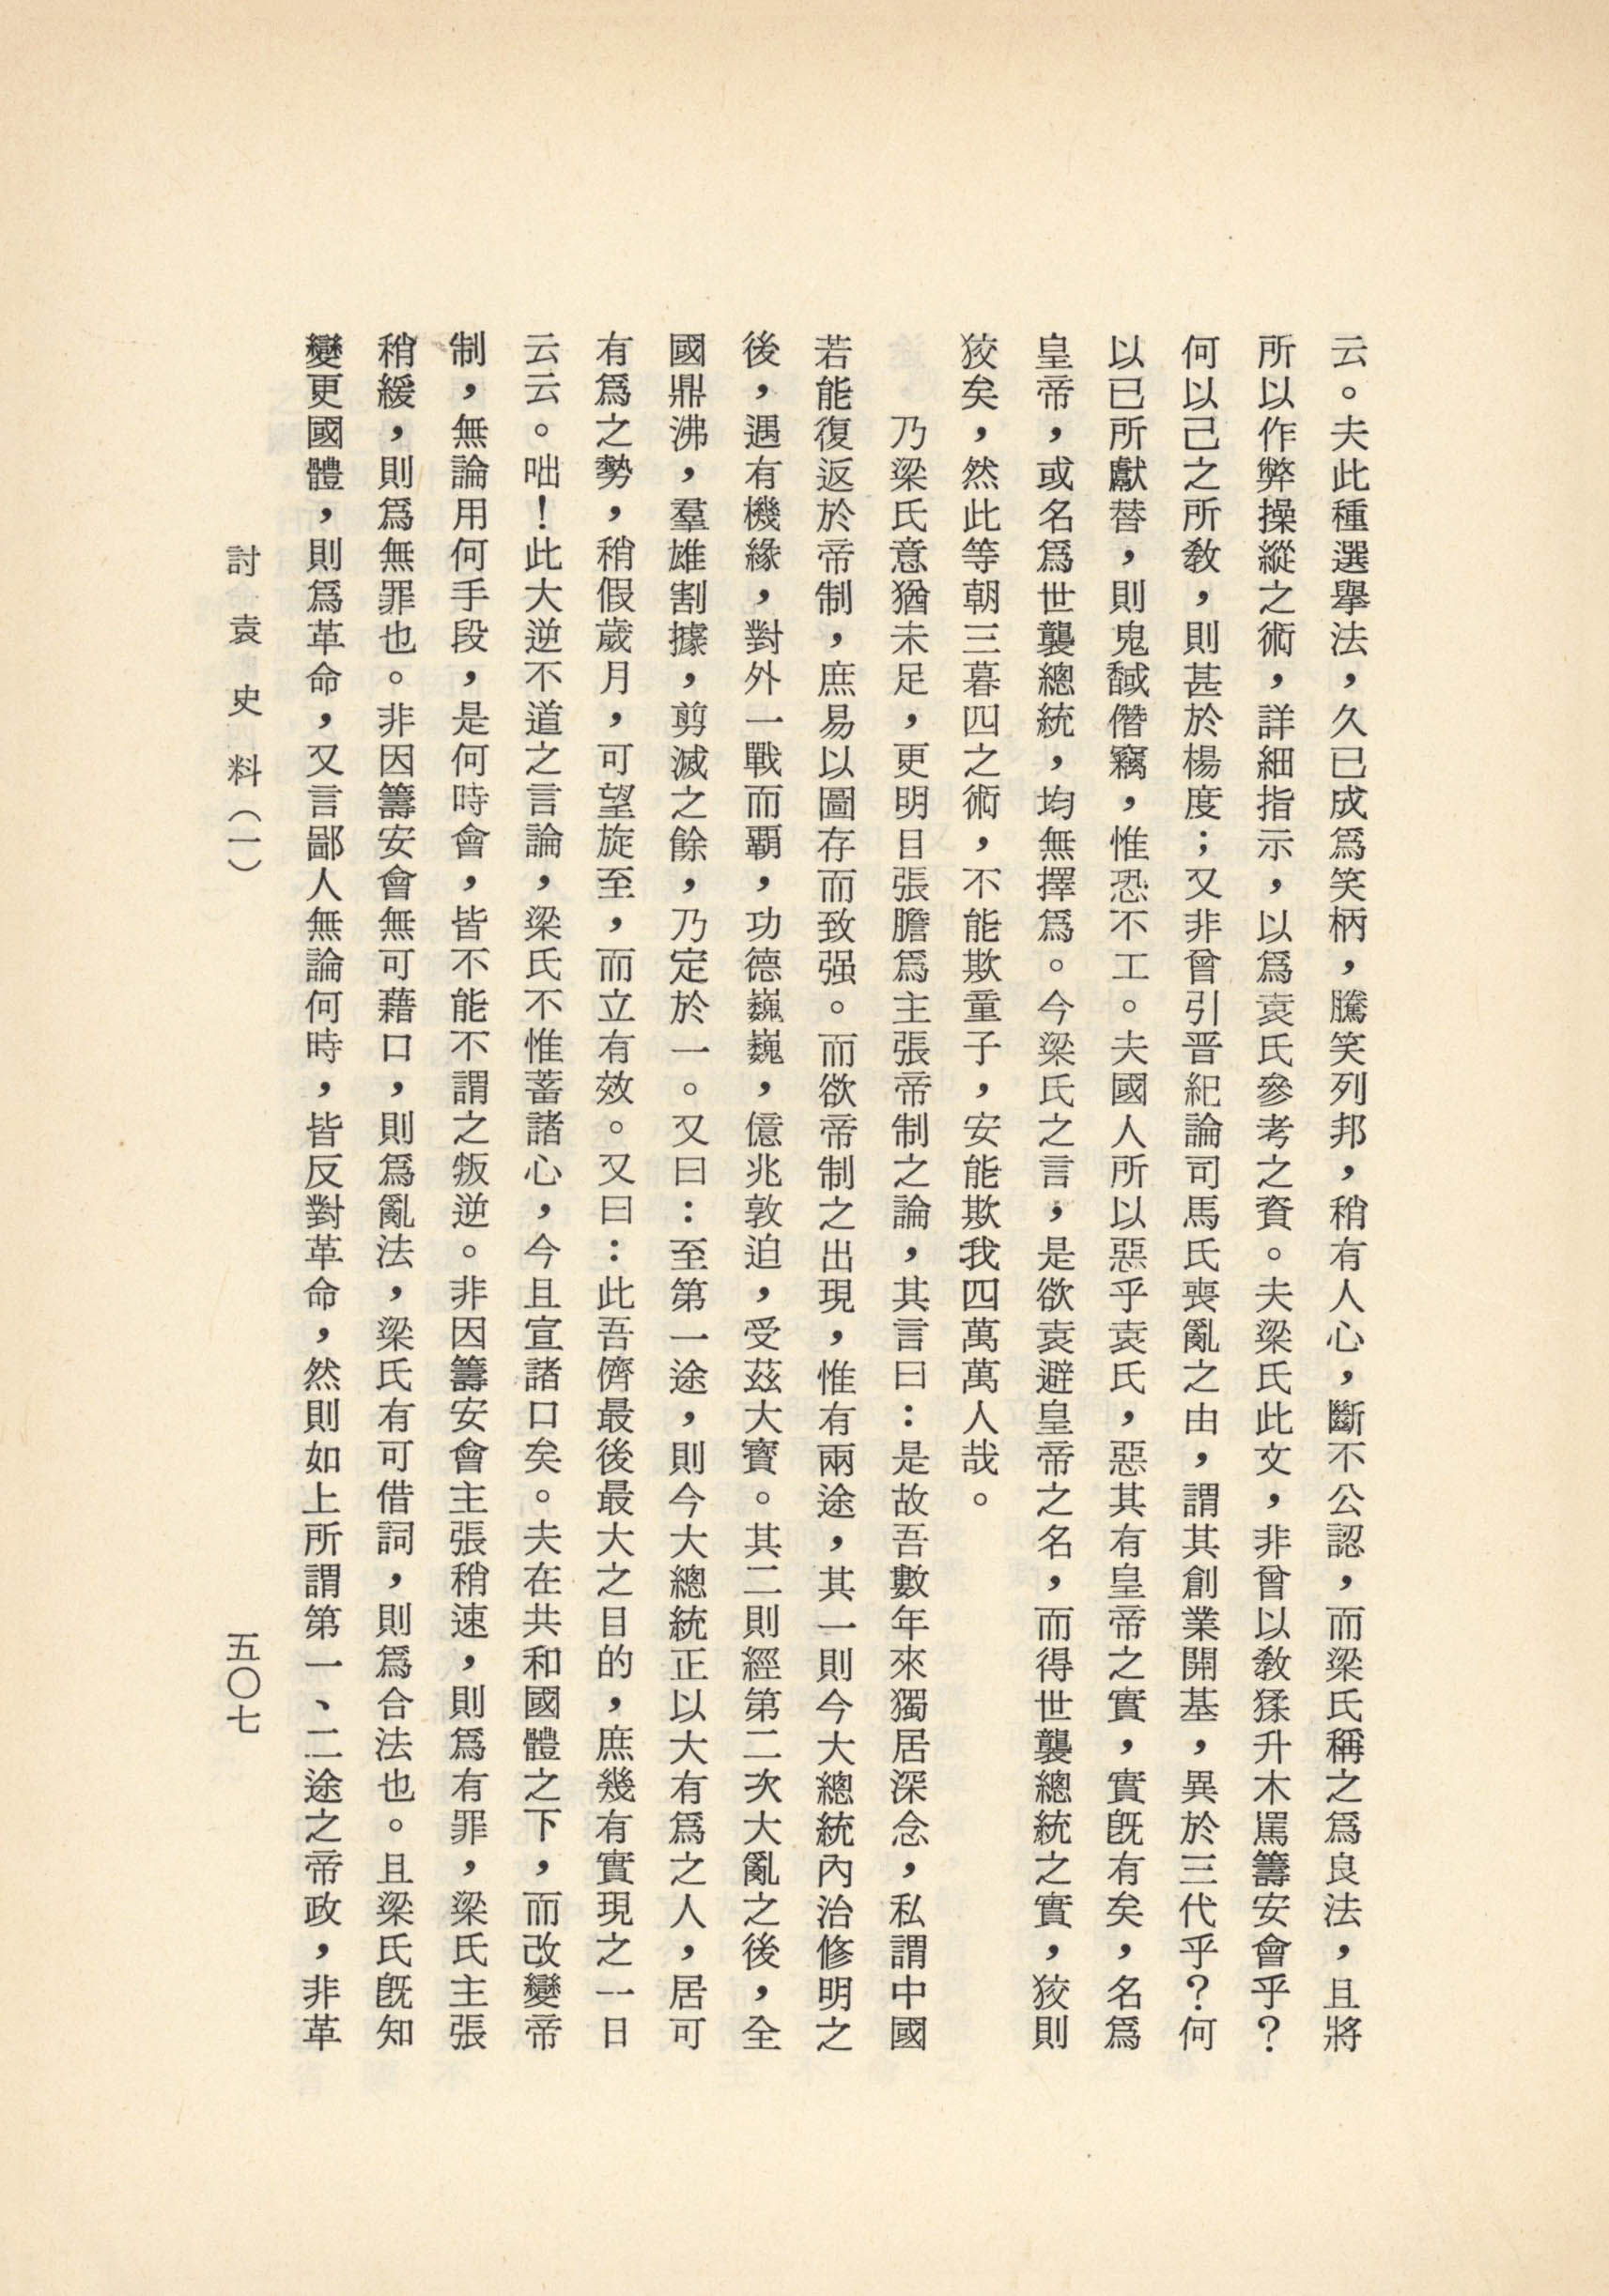 云。夫此種選舉法，久已成爲笑柄，騰笑列邦，稍有人心，斷不公認，而梁氏稱之爲良法，且將
所以作弊操縱之術，詳細指示，以爲袁氏參考之資。夫梁氏此文，非曾以敎猱升木罵籌安會乎？
何以己之所敎，則甚於楊度；又非曾引晋紀論司馬氏喪亂之由，謂其創業開基，異於三代乎？何
以已所獻替，則鬼馘僭竊，惟恐不工。夫國人所以惡乎袁氏，惡其有皇帝之實，實旣有矣，名爲
皇帝，或名爲世襲總統，均無擇爲。今梁氏之言，是欲袁避皇帝之名，而得世襲總統之實，狡則
狡矣，然此等朝三暮四之術，不能欺童子，安能欺我四萬萬人哉。
乃梁氏意猶未足，更明目張膽爲主張帝制之論，其言曰：是故吾數年來獨居深念，私謂中國
若能復返於帝制，庶易以圖存而致强。而欲帝制之出現，惟有兩途，其一則今大總統內治修明之
後，遇有機緣，對外一戰而覇，功德巍巍，億兆敦迫，受茲大寶。其二則經第二次大亂之後，全
國鼎沸，羣雄割據，剪滅之餘，乃定於一。又曰：至第一途，則今大總統正以大有爲之人，居可
有爲之勢，稍假歲月，可望旋至，而立有效。又曰：此吾儕最後最大之目的，庶幾有實現之一日
云云。咄！此大逆不道之言論，梁氏不惟蓄諸心，今且宣諸口矣。夫在共和國體之下，而改變帝
制，無論用何手段，是何時會，皆不能不謂之叛逆。非因籌安會主張稍速，則爲有罪，梁氏主張
稍緩，則爲無罪也。非因籌安會無可藉口，則爲亂法，梁氏有可借詞，則爲合法也。且梁氏旣知
變更國體，則爲革命，又言鄙人無論何時，皆反對革命，然則如上所謂第一、二途之帝政，非革
討袁史料（一）
五〇七